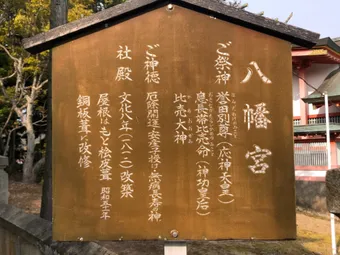 八幡宮
ご祭神
誉田別尊（応神天皇）
息長帯比売命（神功皇后）
比売大神
ご神徳
厄除開運・安産子授け・無病長寿の神
社殿
文化八年（一八一一）改築
屋根はもと桧皮葺
昭和五十一年
銅板葺に改修